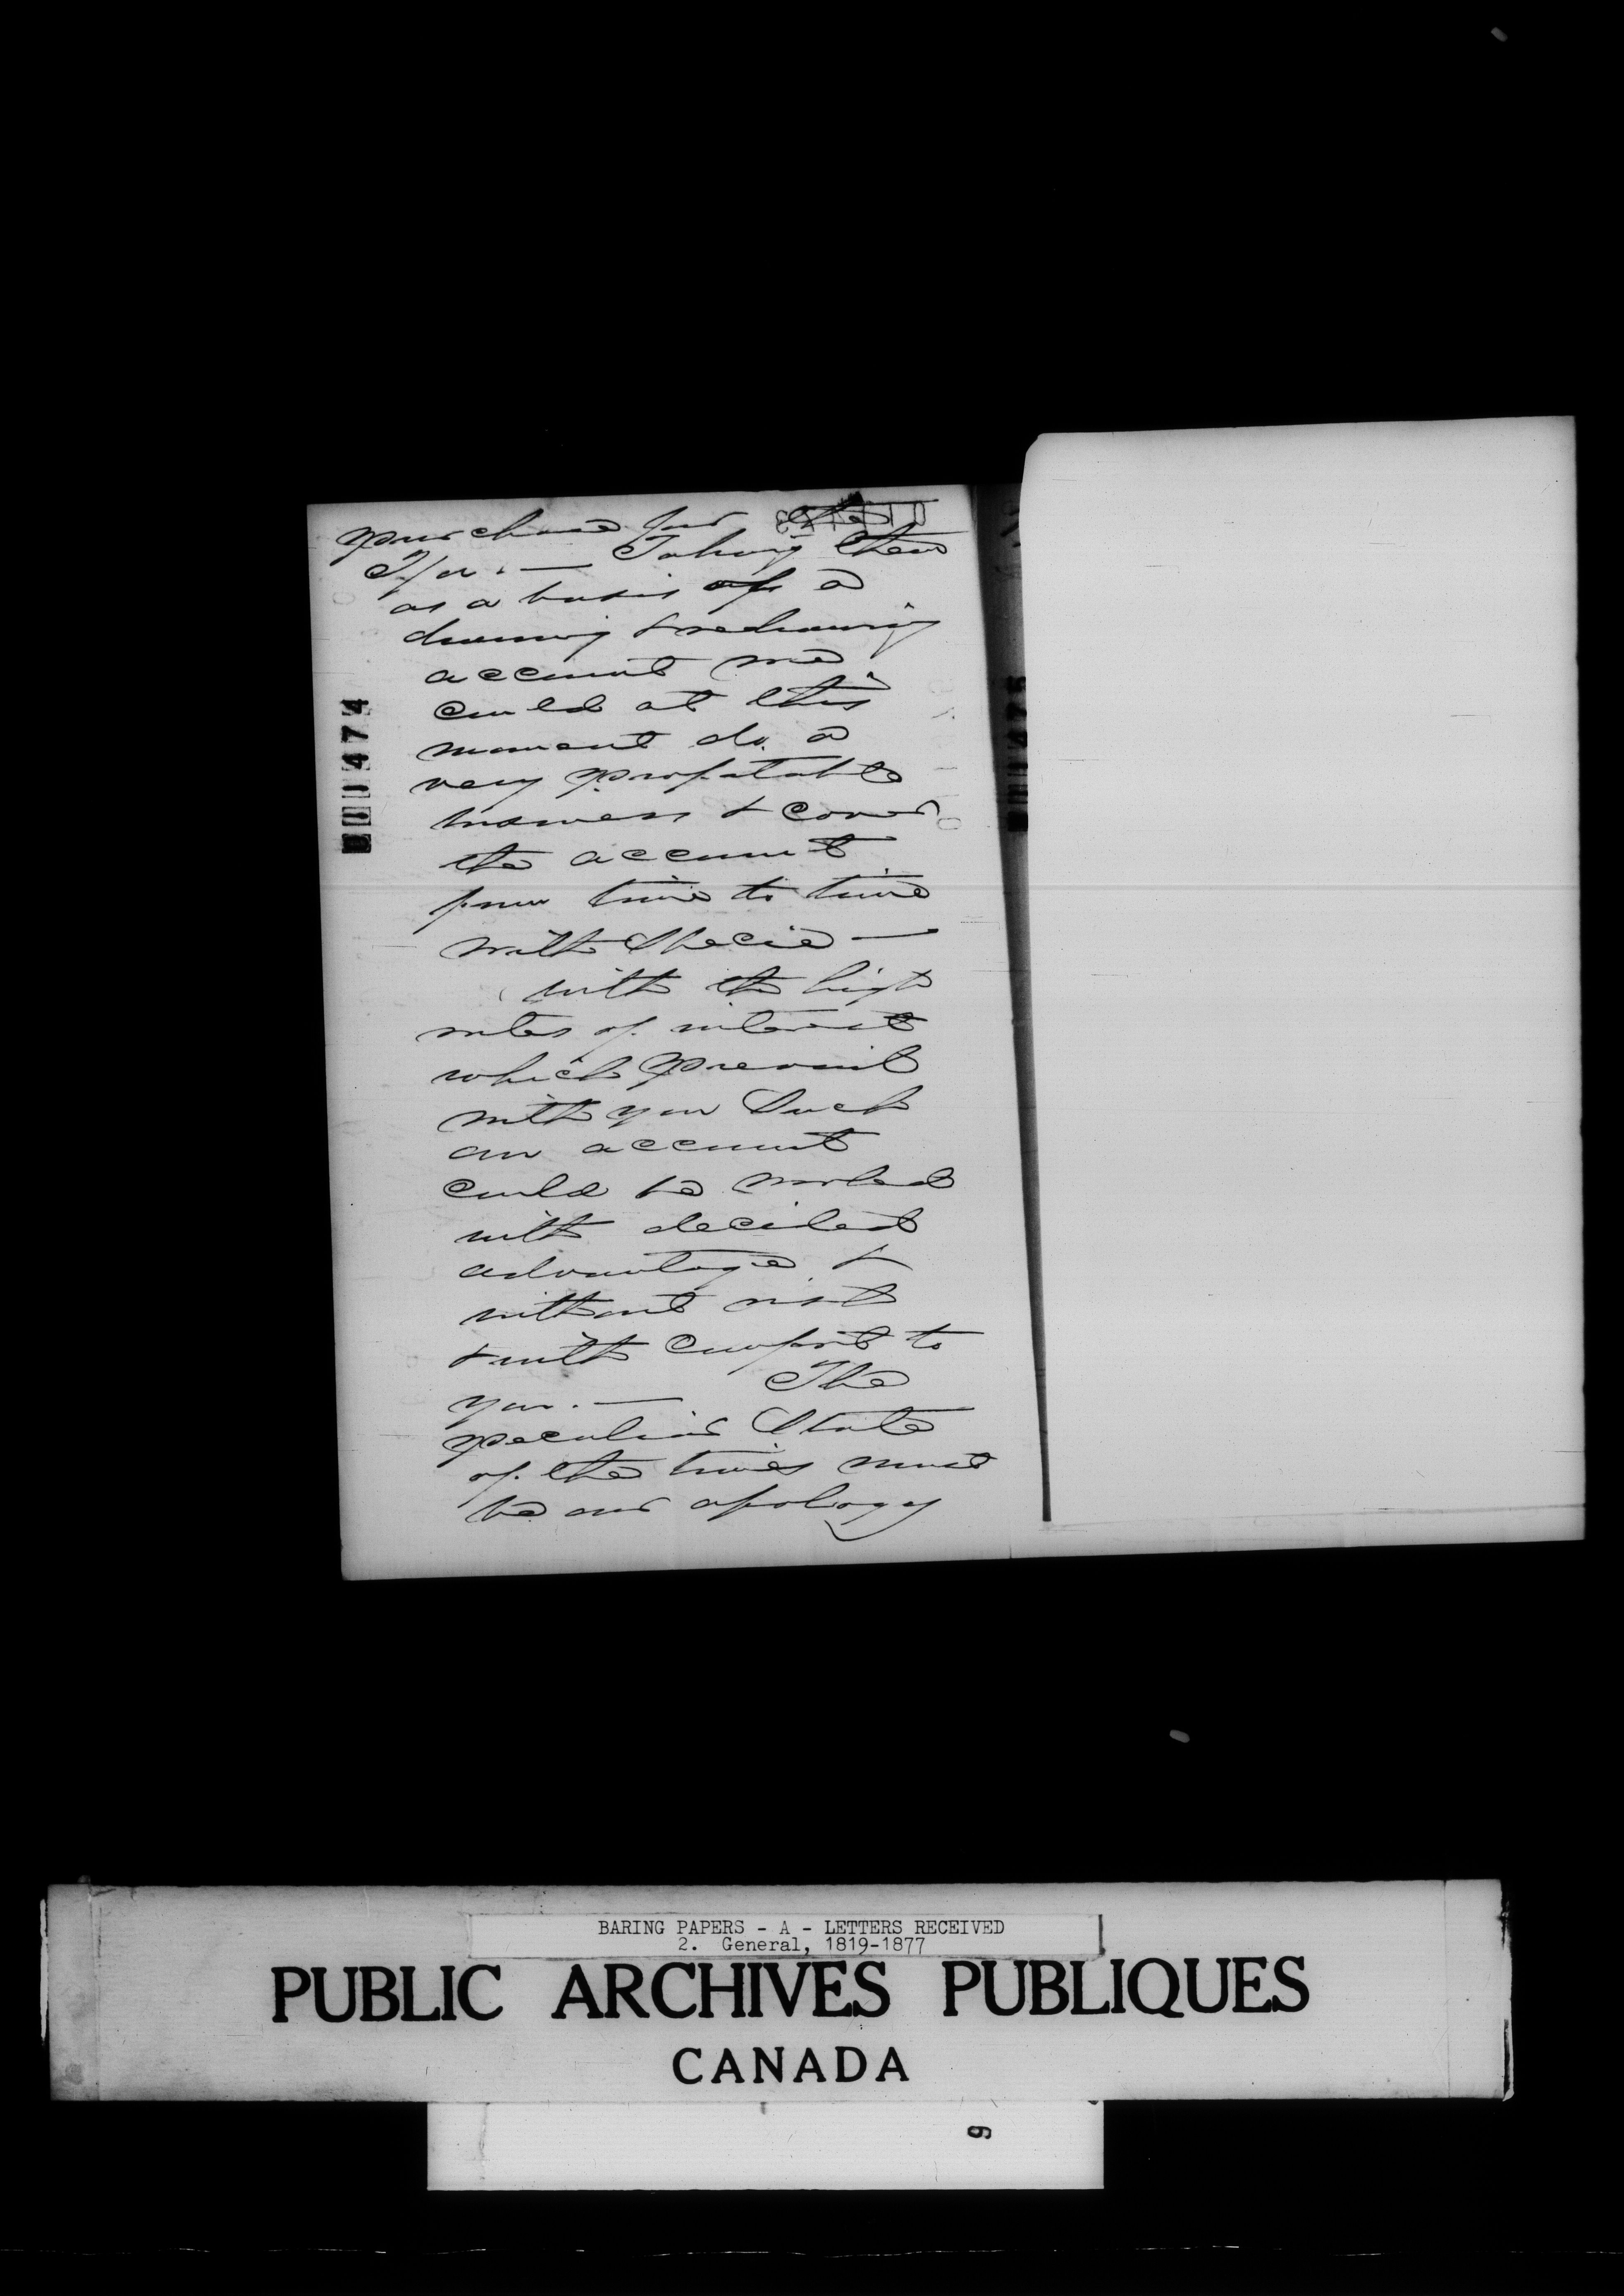 purchase for the
Taking then
as a basis of a
drawing & redrawing
account we
could at this
moment do a
very profitable
business & cover
the account
from time to time
with Specie —
with the high
rates of interest
which prevail
with you Such
an account
could be worked
with decided
advantage &
without risk
& with comfort to
you. — The
peculiar State
of the times must
be our apology
1474
BARING PAPERS - A - LETTERS RECEIVED
2. General, 1819-1877
PUBLIC ARCHIVES PUBLIQUES
CANADA
9